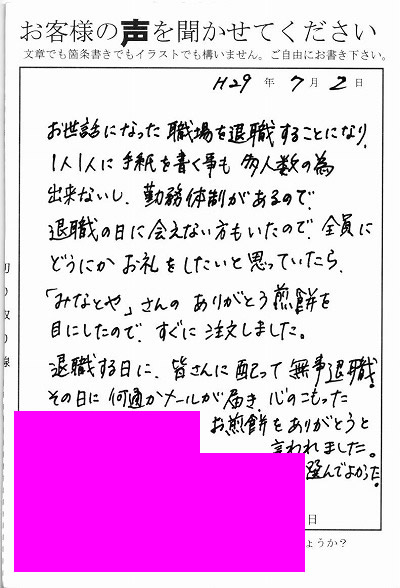 お客様の声を聞かせてください
文章でも箇条書きでもイラストでも構いません。ご自由にお書き下さい。
H29 年 7 月 2 日
お世話になった 職場を退職することになり、
1人1人に 手紙を書く事も 多人数の為
出来ないし、勤務体制があるので、
退職の日に会えない方もいたので、全員に
どうにか お礼をしたいと思っていたら、
「みなとや」さんの ありがとう煎餅を
目にしたので、すぐに 注文しました。
退職する日に、皆さんに 配って 無事退職。
その日に 何通かメールが届き、心のこもった
お煎餅を ありがとうと
言われました。
選んでよかった。
日
ょうか?
切り取り線